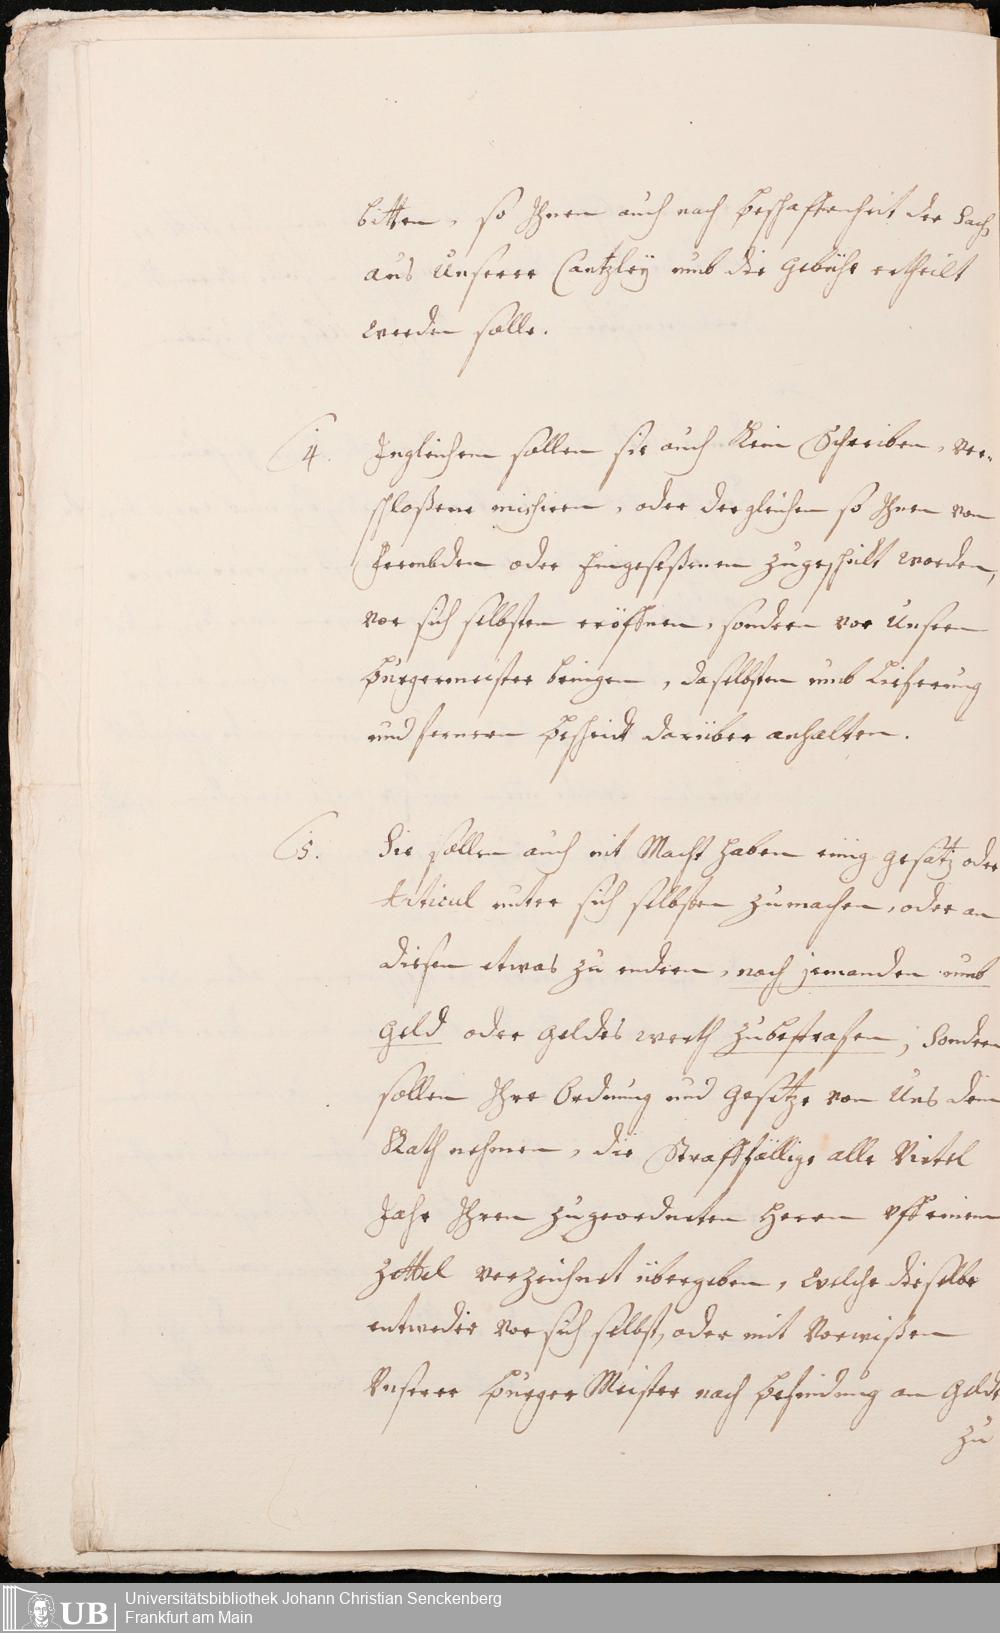 bitten, so Ihnen auch nach beschaffenheit der Sach,
aus Unserer Cantzley umb die gebühr ertheilt
werden solle.
4. Ingleichem sollen sie auch Kein Schreiben, ver-
schloßene missiven, oder dergleichen so Ihnen von
Frembden oder Eingeseßenen zugeschickt worden,
vor sich selbsten eröffnen, sondern vor Unsern
Burgermeister bringen, daselbsten umb Lieferung
und fernern bescheidt darüber anhalten.
5. Sie sollen auch nit Macht haben einig gesätz oder
Articul unter sich selbsten zumachen, oder an
diesen etwas zu endern, noch jemanden umb
geld oder geldes werth zubestrafen, Sondern
sollen Ihre Ordnung und gesätze von Uns dem
Rath nehmen, die Straffällige alle Viertel
Jahr Ihren zugeordneten Herrn uff einem
Zettel verzeichnet übergeben, welche dieselbe
entweder vor sich selbst, oder mit Vorwißen
Unserer Burger Meister nach befindung an Geldt
zu
UB
Universitätsbibliothek Johann Christian Senckenberg
Frankfurt am Main